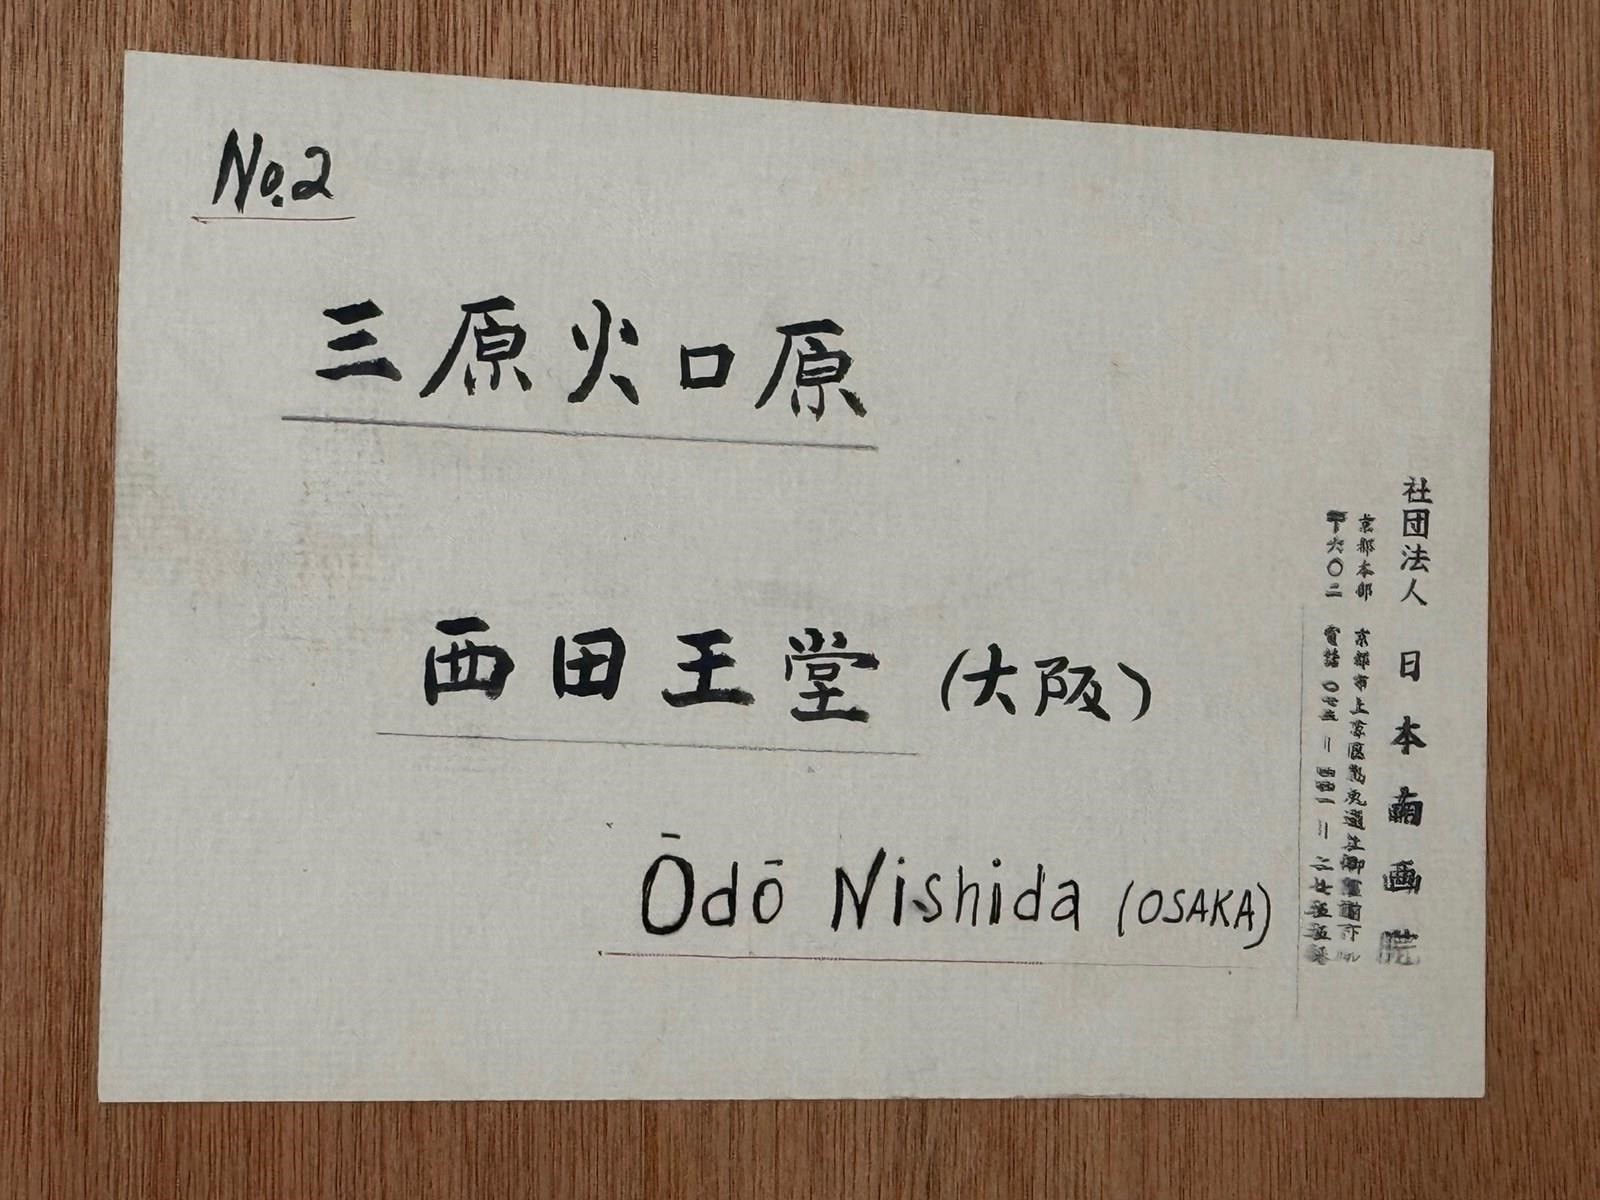 No.2
三原火口原
西田王堂 (大阪)
Ōdō Nishida (OSAKA)
社団法人 日本南画院
京都本部 京都市上京区烏丸通上御霊前下ル
〒六〇二 電話 〇七五-四四一-